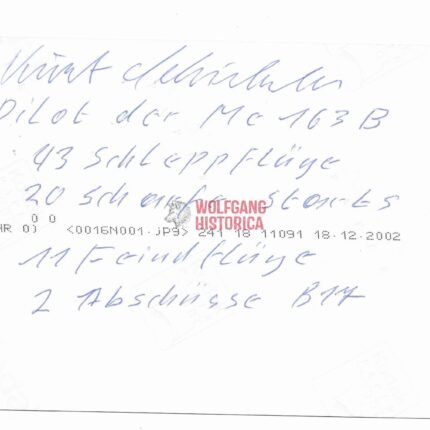 Kurt Schiebeler
Pilot der Me 163 B
43 Schleppflüge
20 Scharfe Starts
WOLFGANG
HISTORICA
0 0
HR 0) <0016N001.jP9> 241 18 11091 18.12.2002
11 Feindflüge
2 Abschüsse B17